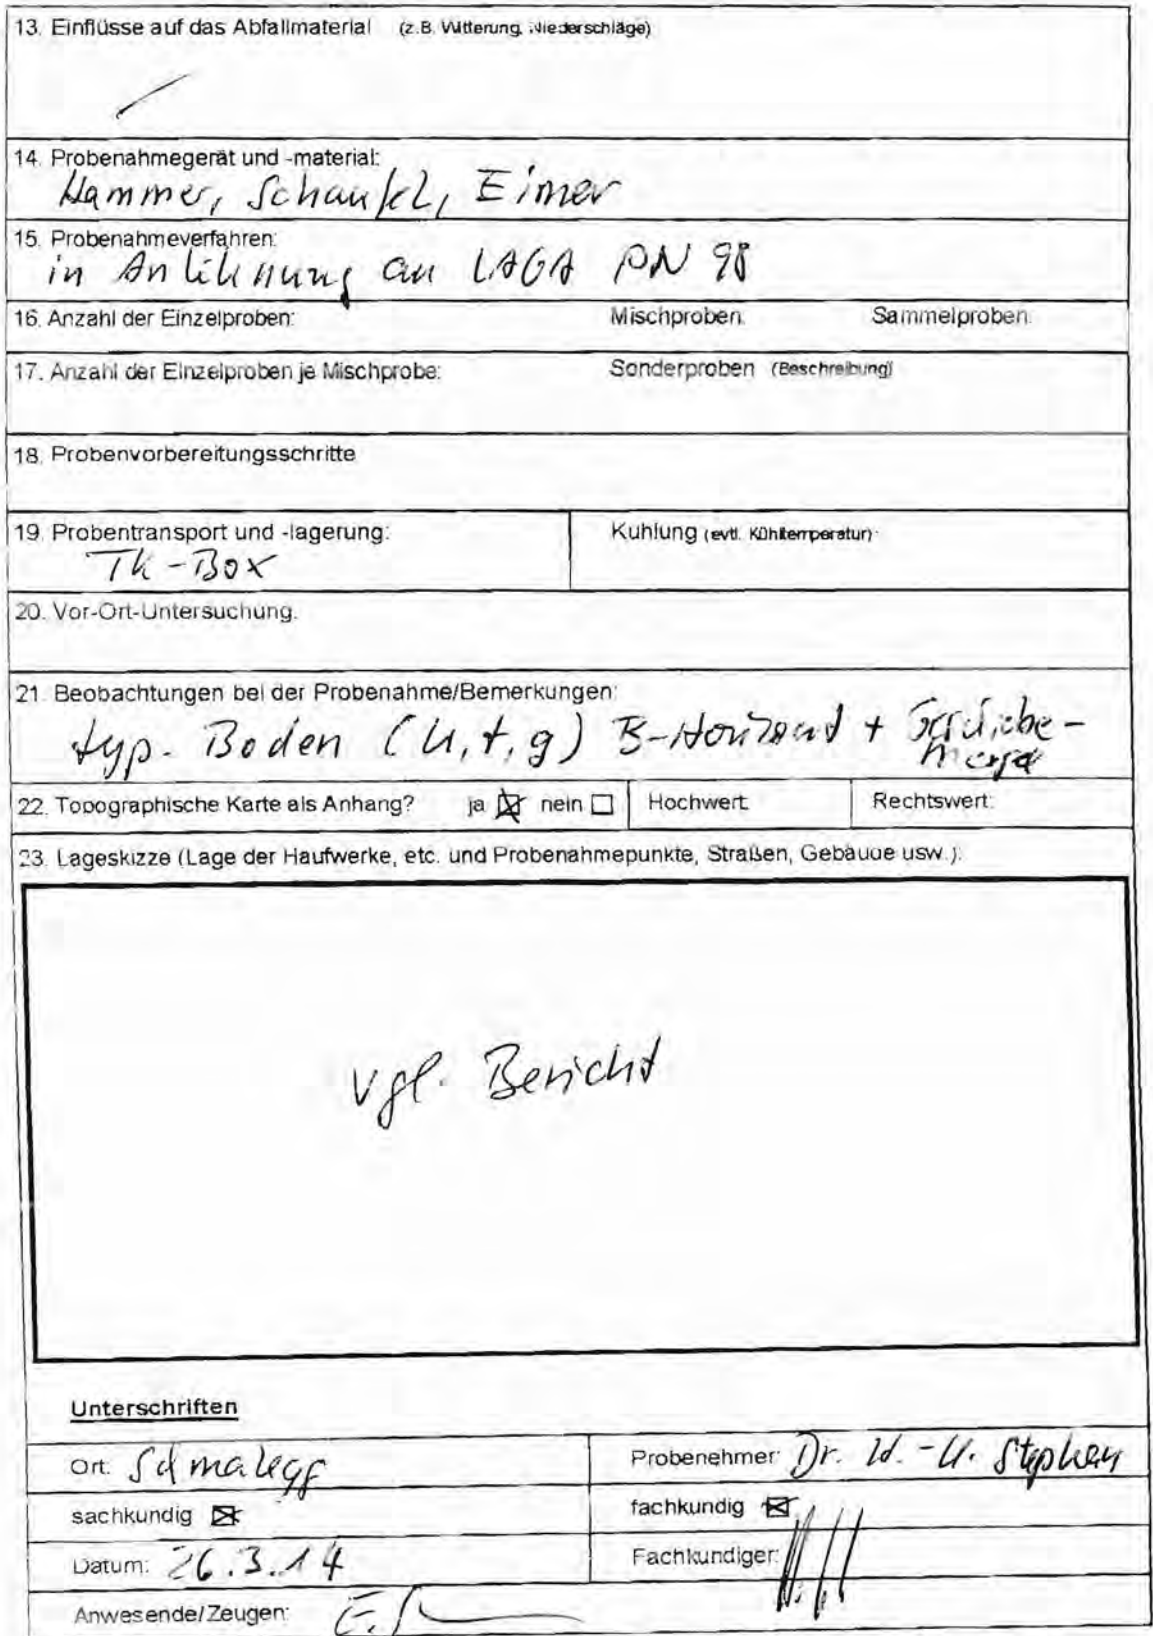 13. Einflüsse auf das Abfallmaterial (z.B. Witterung, Niederschläge)
14. Probenahmegerät und -material:
Hammer, Schaufel, Eimer
15. Probenahmeverfahren:
in Anlehnung an LAGA PN 98
16. Anzahl der Einzelproben: Mischproben: Sammelproben:
17. Anzahl der Einzelproben je Mischprobe: Sonderproben (Beschreibung)
18. Probenvorbereitungsschritte
19. Probentransport und -lagerung: Kühlung (evtl. Kühltemperatur):
TK-Box
20. Vor-Ort-Untersuchung:
21. Beobachtungen bei der Probenahme/Bemerkungen:
typ. Boden (U, t, g) B-Horizont + Geschiebe-
mergel
22. Topographische Karte als Anhang? ja ☒ nein ☐ Hochwert: Rechtswert:
23. Lageskizze (Lage der Haufwerke, etc. und Probenahmepunkte, Straßen, Gebäude usw.):
vgl. Bericht
Unterschriften
Ort: Schmalegg Probenehmer: Dr. -U. Stephan
sachkundig ☒ fachkundig ☒
Datum: 26.3.14 Fachkundiger:
Anwesende/Zeugen: